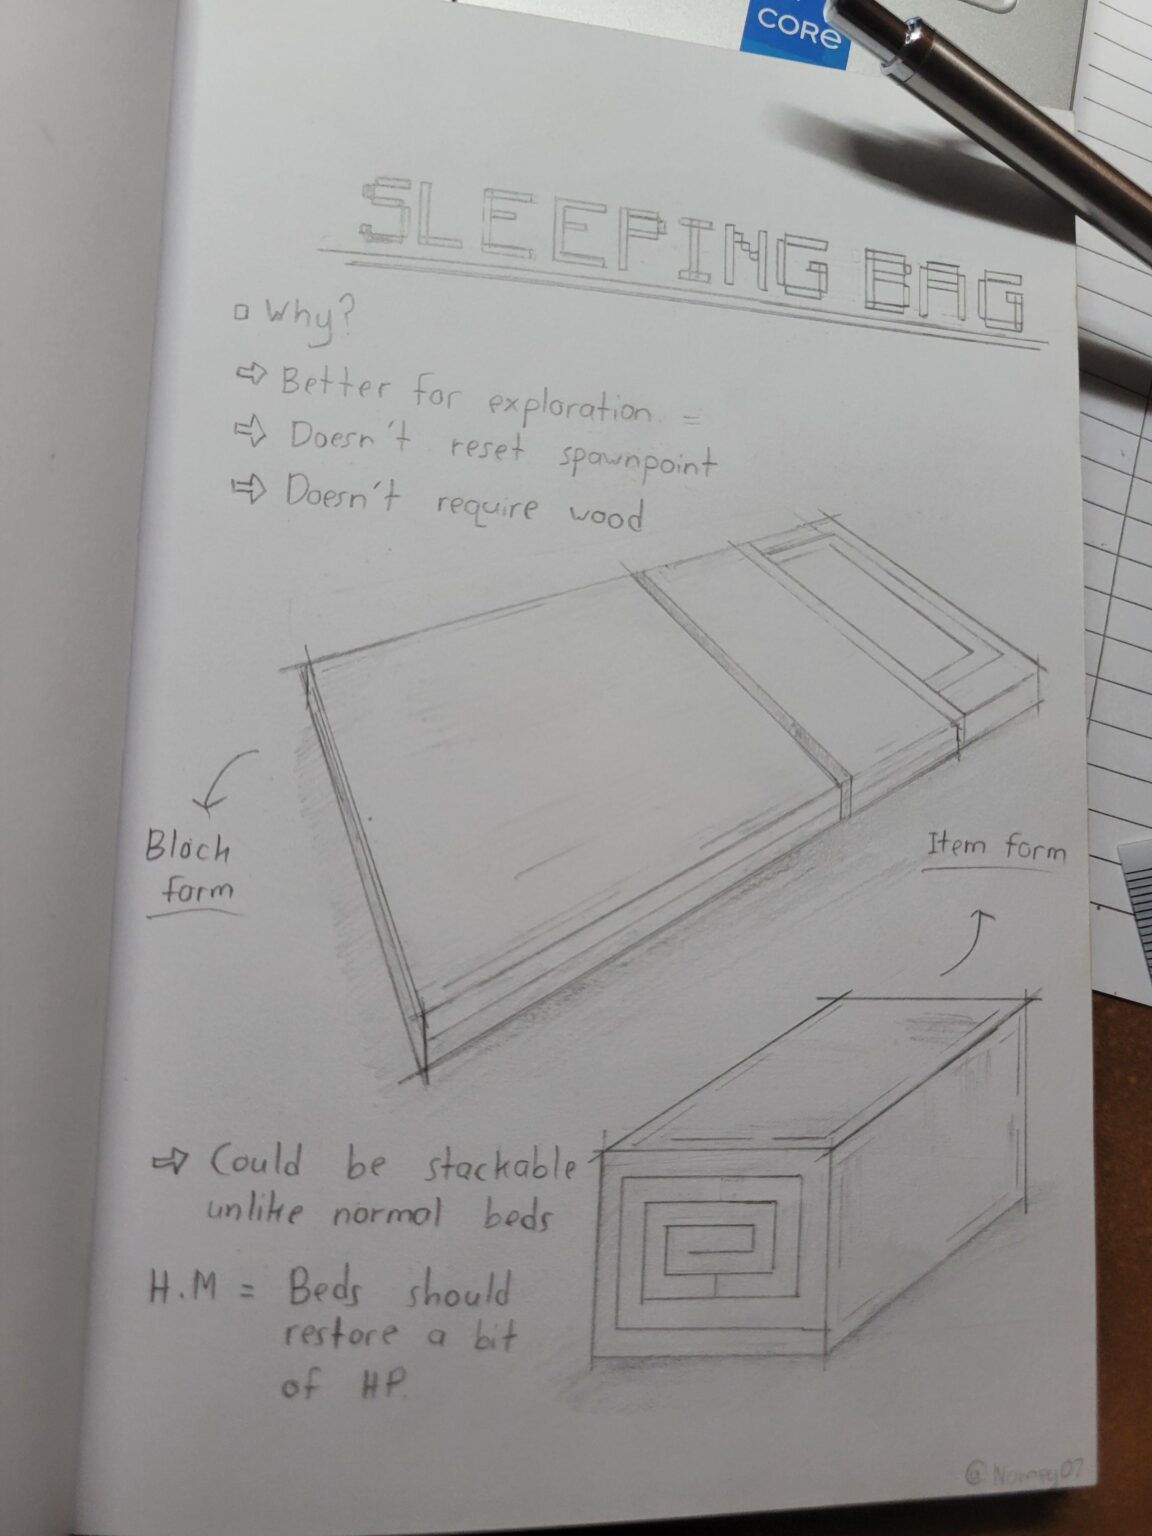 CORE
SLEEPING BAG
Why?
⇨ Better for exploration =
⇨ Doesn't reset spawnpoint
⇨ Doesn't require wood
Block
form
Item form
⇨ Could be stackable
unlike normal beds
H.M = Beds should
restore a bit
of HP.